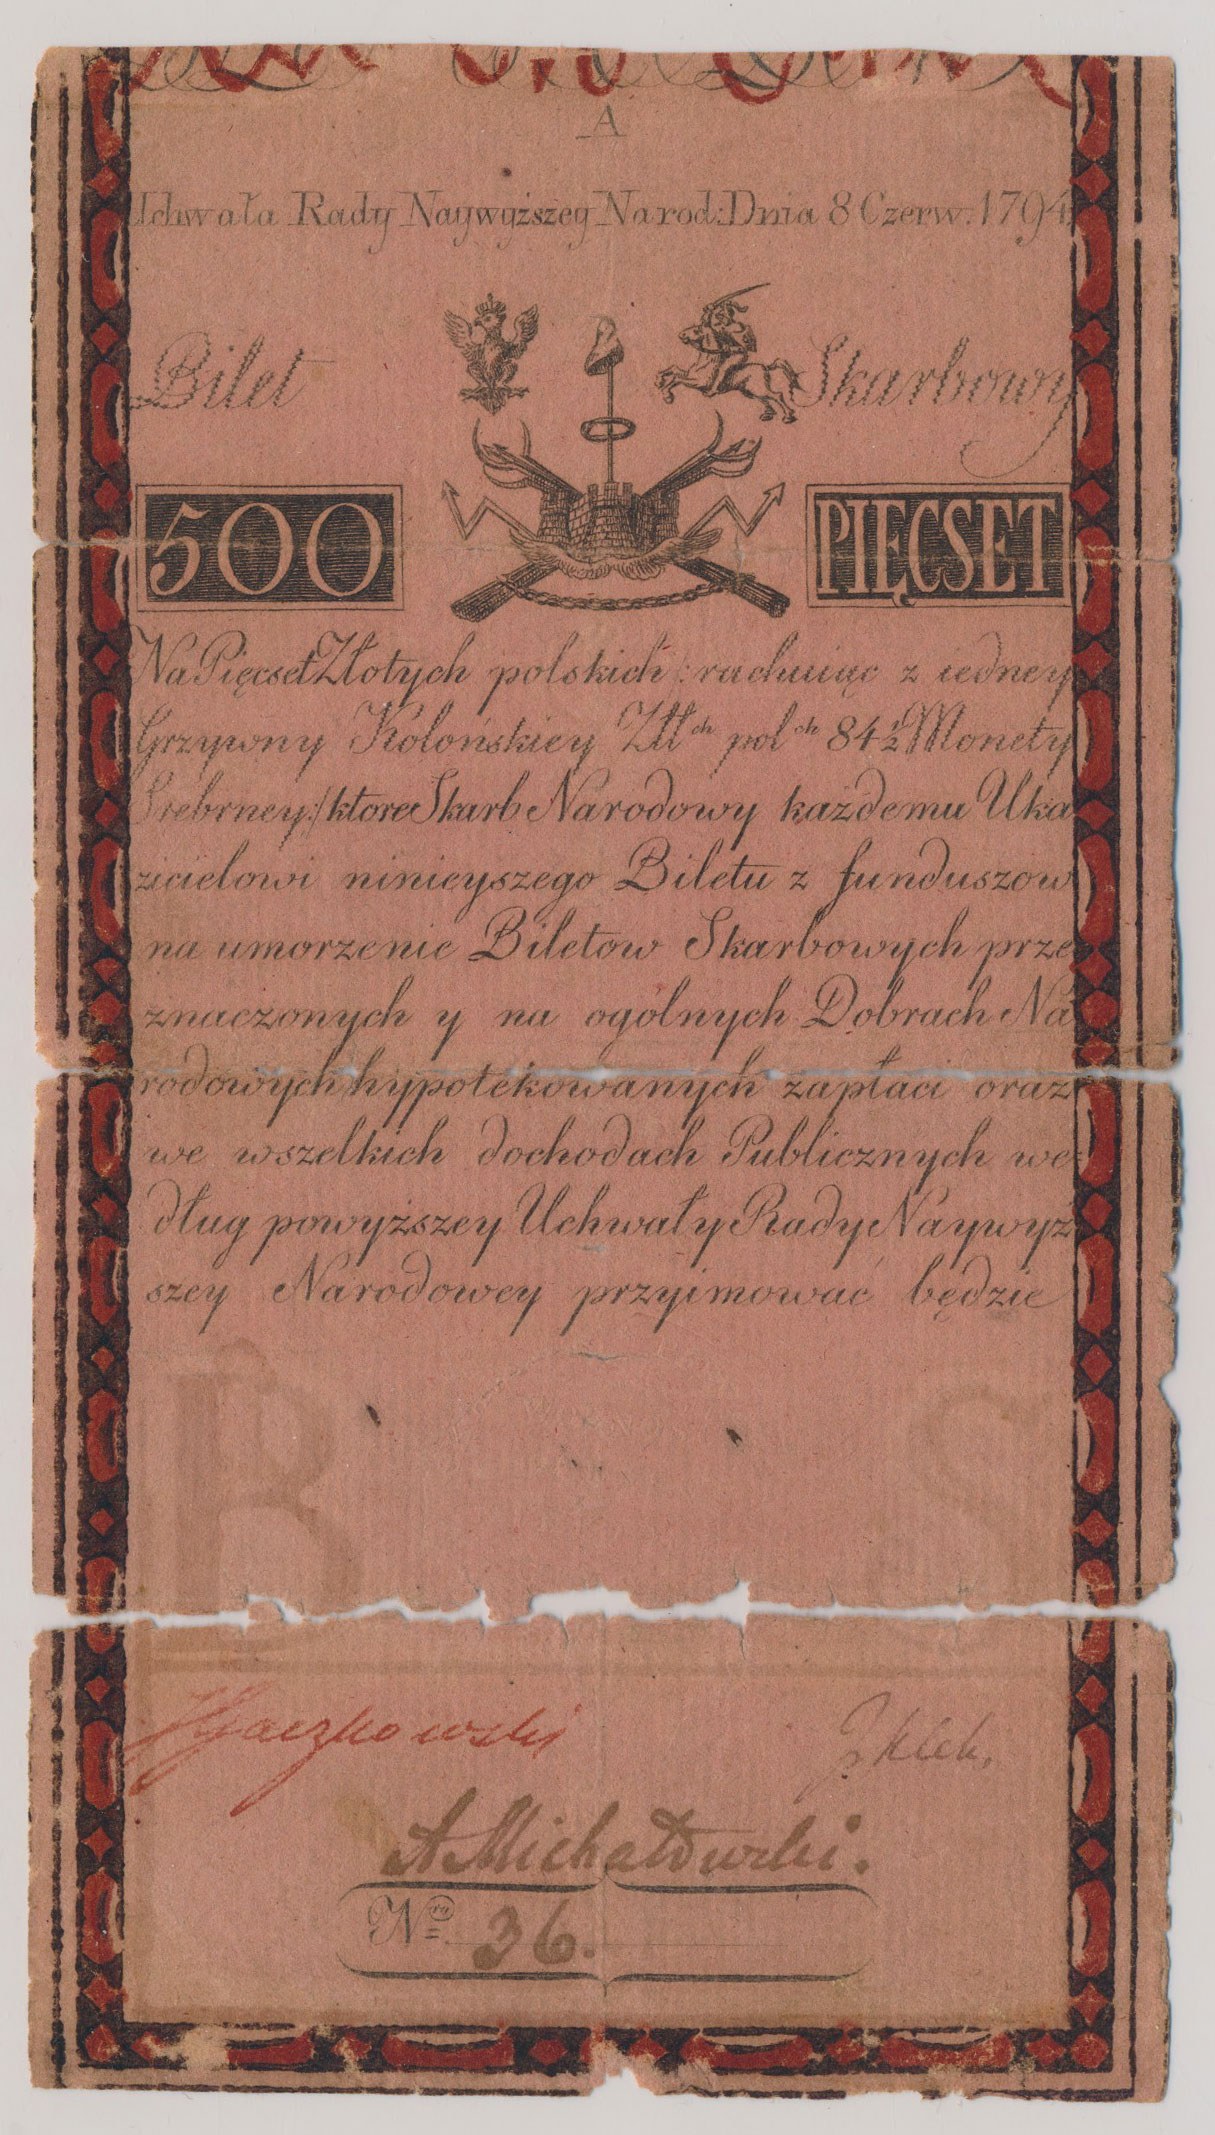 A
Uchwała Rady Naywyższey Narod: Dnia 8 Czerw. 1794
Bilet Skarbowy
500 PIĘCSET
Na Pięcset Złotych polskich /: rachuiąc z iedney
Grzywny Kolońskiey Złł ch pol ch 84 1/2 Monety
Srebrney :/ ktore Skarb Narodowy każdemu Uka
zicielowi ninieyszego Biletu z funduszow
na umorzenie Biletow Skarbowych prze
znaczonych y na ogolnych Dobrach Na
rodowych hypotekowanych zapłaci oraz
we wszelkich dochodach Publicznych we=
dług powyższey Uchwały Rady Naywyż
szey Narodowey przyimować będzie
A Michałowski.
Nro 36.